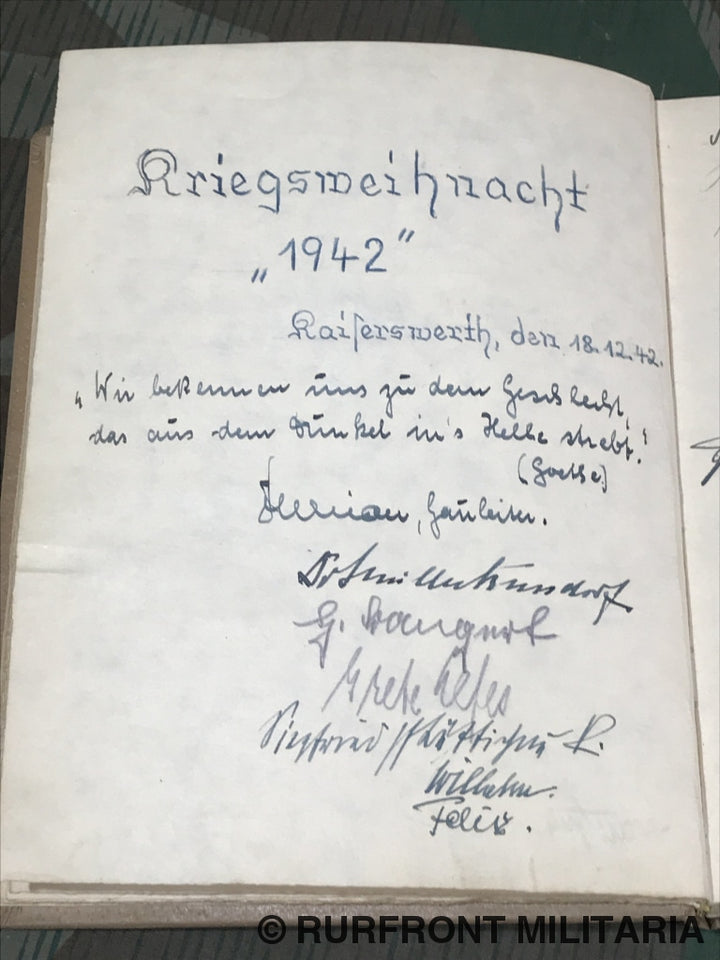 Kriegsweihnacht
„1942”
Kaiserswerth, den 18.12.42.
„Wir bekennen uns zu dem Geschlecht,
das aus dem Dunkel in's Helle strebt.“
(Goethe)
Florian, Gauleiter.
G. Bangert
Grete
Siegfried
Wilhelm.
Felix.
© RURFRONT MILITARIA